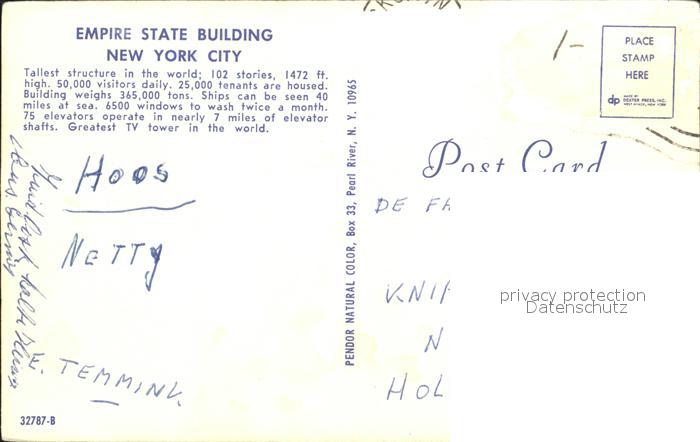 EMPIRE STATE BUILDING
NEW YORK CITY
Tallest structure in the world; 102 stories, 1472 ft.
high. 50,000 visitors daily. 25,000 tenants are housed.
Building weighs 365,000 tons. Ships can be seen 40
miles at sea. 6500 windows to wash twice a month.
75 elevators operate in nearly 7 miles of elevator
shafts. Greatest TV tower in the world.
HOOS
NETTY
TEMMINK.
32787-B
PENDOR NATURAL COLOR, Box 33, Pearl River, N. Y. 10965
1-
PLACE
STAMP
HERE
dp
MADE BY
DEXTER PRESS, INC.
WEST NYACK, NEW YORK
Post Card
DE FA
KNIP
N
HOL
privacy protection
Datenschutz